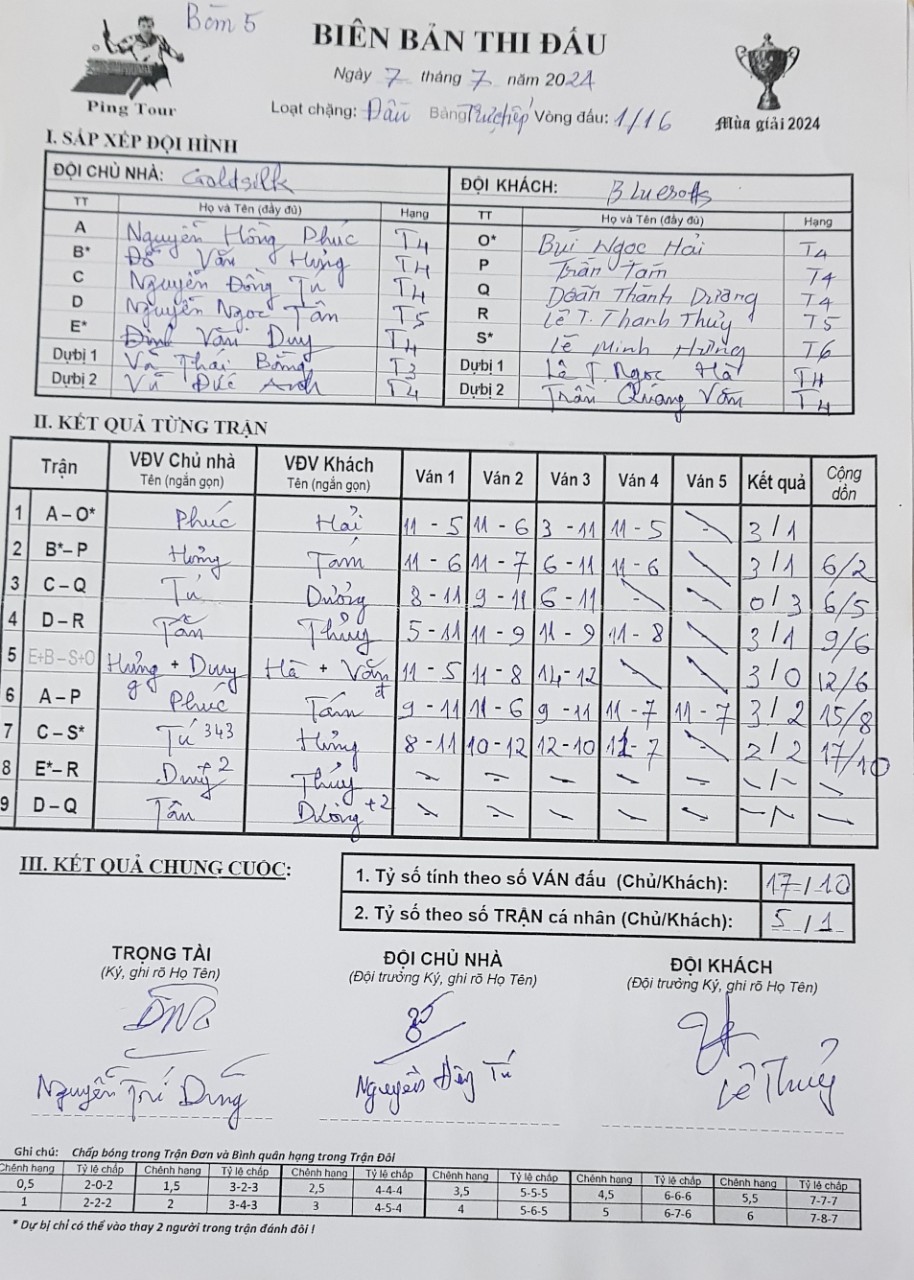 Bàn 5
BIÊN BẢN THI ĐẤU
Ngày 7 tháng 7 năm 2024
Ping Tour
Loạt chặng: Đấu Bảng Trực tiếp Vòng đấu: 1/16
Mùa giải 2024
I. SẮP XẾP ĐỘI HÌNH
ĐỘI CHỦ NHÀ: Goldsilk ĐỘI KHÁCH: Bluesofts
TT Họ và Tên (đầy đủ) Hạng TT Họ và Tên (đầy đủ) Hạng
A Nguyễn Hồng Phúc T4 O* Bùi Ngọc Hải T4
B* Đỗ Văn Hưng T4 P Trần Tám T4
C Nguyễn Đồng Tú T4 Q Doãn Thành Dương T4
D Nguyễn Ngọc Tân T5 R Lê T. Thanh Thủy T5
E* Đinh Văn Duy T4 S* Lê Minh Hưởng T6
Dự bị 1 Vũ Thái Bằng T3 Dự bị 1 Lê T. Ngọc Hà T4
Dự bị 2 Vũ Đức Anh T4 Dự bị 2 Trần Quang Văn T4
II. KẾT QUẢ TỪNG TRẬN
Trận VĐV Chủ nhà Tên (ngắn gọn) VĐV Khách Tên (ngắn gọn) Ván 1 Ván 2 Ván 3 Ván 4 Ván 5 Kết quả Cộng dồn
1 A – O* Phúc Hải 11 - 5 11 - 6 3 - 11 11 - 5 - 3 / 1
2 B* – P Hưng Tám 11 - 6 11 - 7 6 - 11 11 - 6 - 3 / 1 6/2
3 C – Q Tú Dương 8 - 11 9 - 11 6 - 11 - - 0 / 3 6/5
4 D – R Tân Thủy 5 - 11 11 - 9 11 - 9 11 - 8 - 3 / 1 9/6
5 E+B – S+O Hưng + Duy Hà + Văn 11 - 5 11 - 8 14 - 12 - - 3 / 0 12/6
6 A – P Phúc Tám 9 - 11 11 - 6 9 - 11 11 - 7 11 - 7 3 / 2 15/8
7 C – S* Tú 343 Hưởng 8 - 11 10 - 12 12 - 10 11 - 7 - 2 / 2 17/10
8 E* – R Duy +2 Thủy - - - - - - / - -
9 D – Q Tân Dương +2 - - - - - - / - -
III. KẾT QUẢ CHUNG CUỘC:
1. Tỷ số tính theo số VÁN đấu (Chủ/Khách): 17 / 10
2. Tỷ số theo số TRẬN cá nhân (Chủ/Khách): 5 / 1
TRỌNG TÀI ĐỘI CHỦ NHÀ ĐỘI KHÁCH
(Ký, ghi rõ Họ Tên) (Đội trưởng Ký, ghi rõ Họ Tên) (Đội trưởng Ký, ghi rõ Họ Tên)
Nguyễn Trí Dũng Nguyễn Đồng Tú Lê Thủy
Ghi chú: Chấp bóng trong Trận Đơn và Bình quân hạng trong Trận Đôi
Chênh hạng Tỷ lệ chấp Chênh hạng Tỷ lệ chấp Chênh hạng Tỷ lệ chấp Chênh hạng Tỷ lệ chấp Chênh hạng Tỷ lệ chấp Chênh hạng Tỷ lệ chấp
0,5 2-0-2 1,5 3-2-3 2,5 4-4-4 3,5 5-5-5 4,5 6-6-6 5,5 7-7-7
1 2-2-2 2 3-4-3 3 4-5-4 4 5-6-5 5 6-7-6 6 7-8-7
* Dự bị chỉ có thể vào thay 2 người trong trận đánh đôi !